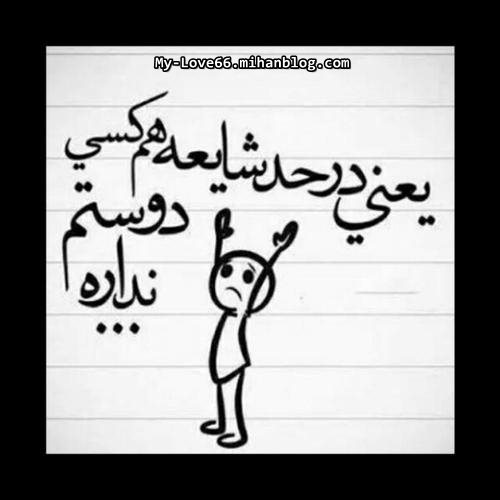 My-Love66.mihanblog.com
يعني در حد شايعه هم كسي
دوستم
نداره
...